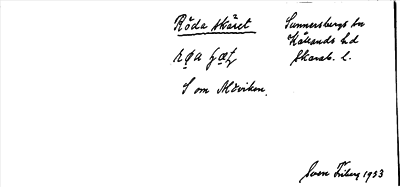 Röda skäret
Sunnersbergs sn
Kållands hd
Skarab. l.
S om Måviken.
Sven Friberg 1953